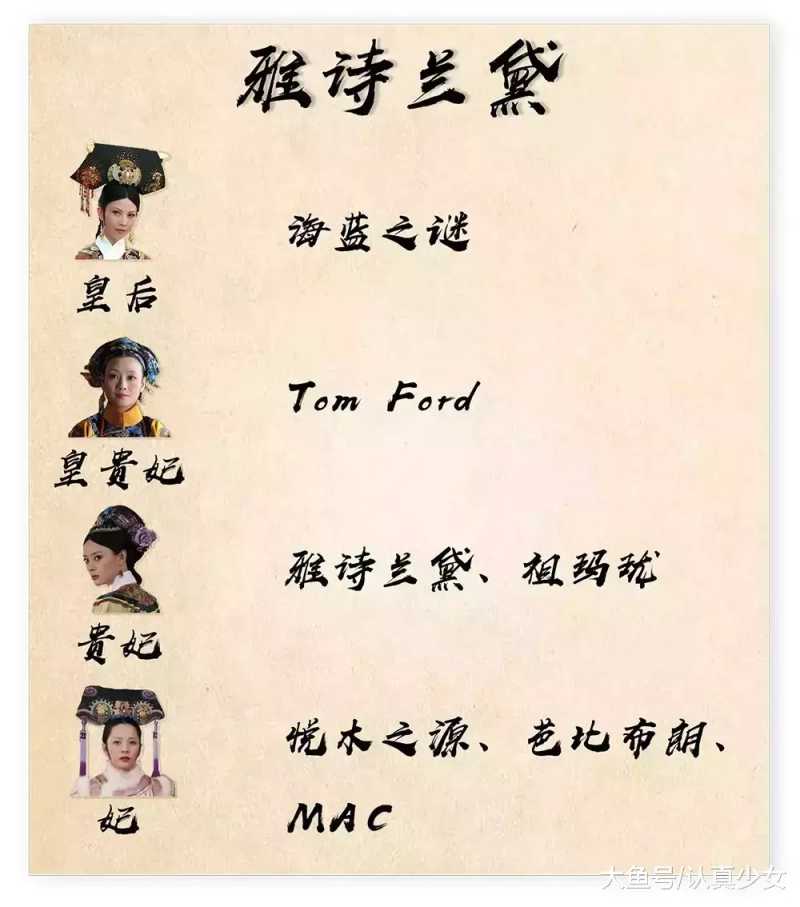 雅诗兰黛
海蓝之谜
皇后
Tom Ford
皇贵妃
雅诗兰黛、祖玛珑
贵妃
悦木之源、芭比布朗、
MAC
妃
大鱼号/认真少女